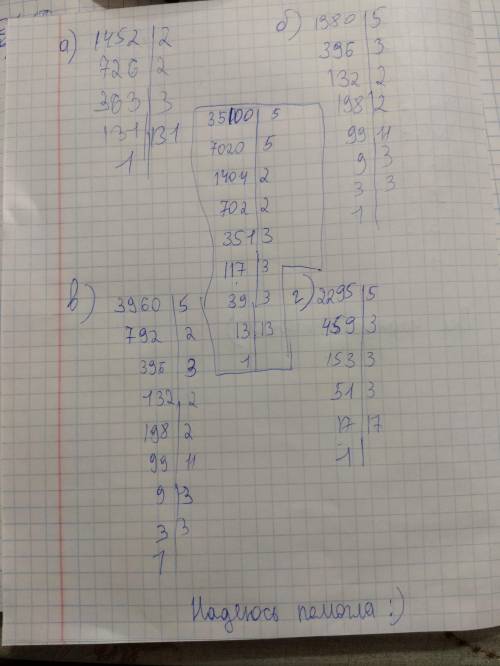 а) 1452 | 2
726 | 2
363 | 3
131 | 131
1
б) 1980 | 5
396 | 3
132 | 2
198 | 2
99 | 11
9 | 3
3 | 3
1
35100 | 5
7020 | 5
1404 | 2
702 | 2
351 | 3
117 | 3
39 | 3
13 | 13
1
в) 3960 | 5
792 | 2
396 | 3
132 | 2
198 | 2
99 | 11
9 | 3
3 | 3
1
г) 2295 | 5
459 | 3
153 | 3
51 | 3
17 | 17
1
Надеюсь помогла :)